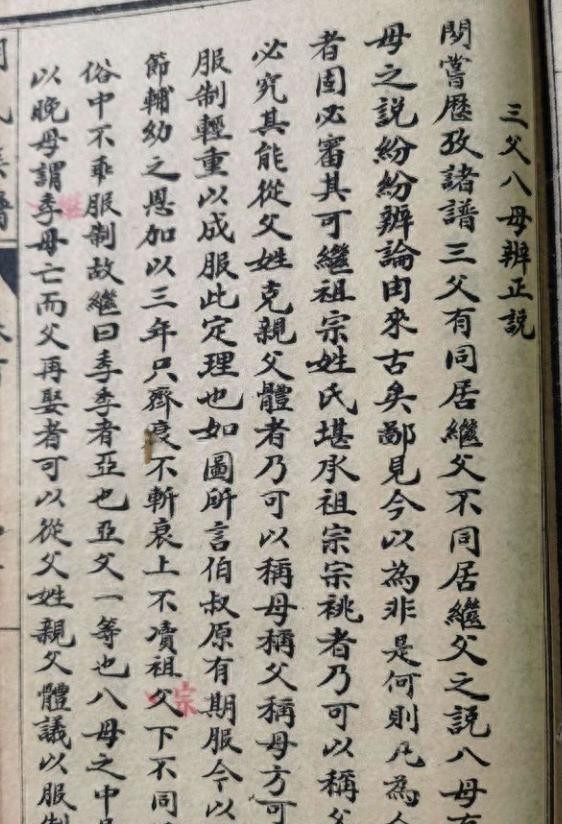 三父八母辨正説
閱嘗歷攷諸譜三父有同居繼父不同居繼父之説八母有
母之説紛紛辨論由來古矣鄙見今以為非是何則凡為
者固必審其可繼祖宗姓氏堪承祖宗宗祧者乃可以稱父
必究其能從父姓克親父體者乃可以稱母稱父稱母方可
服制輕重以成服此定理也如圖所言伯叔原有期服今以
節輔幼之恩加以三年只齊衰不斬衰上不凟祖父下不同
宗
俗中不乖服制故繼曰季季者亞也亞父一等也八母之中
以晚母謂季母亡而父再娶者可以從父姓親父體議以服制
繼